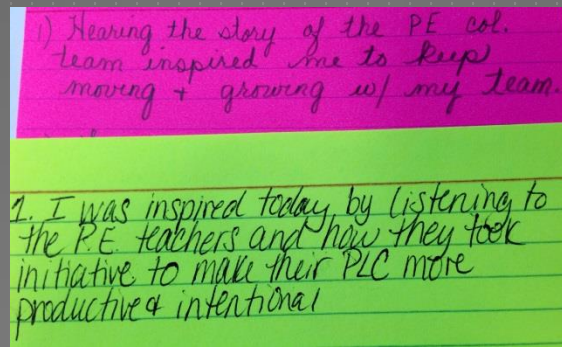 1) Hearing the story of the PE col.
team inspired me to keep
moving + growing w/ my team.
1. I was inspired today by listening to
the P.E. teachers and how they took
initiative to make their PLC more
productive & intentional